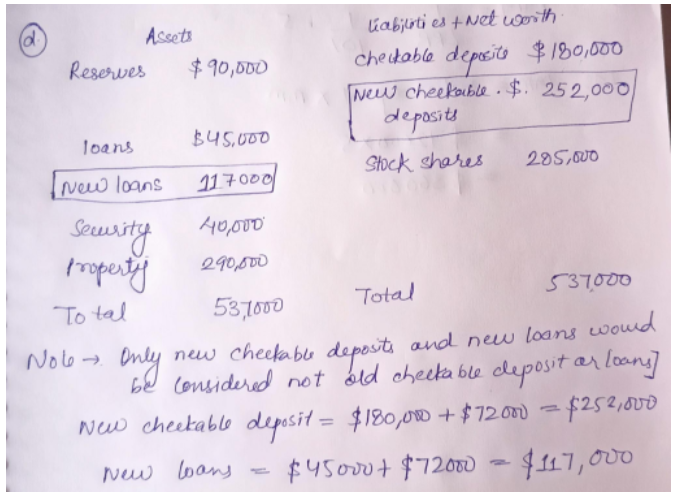 d.
Assets
Liabilities + Net worth
Reserves $90,000
checkable deposits $180,000
New checkable $. 252,000
deposits
loans $45,000
Stock shares 285,000
New loans 117000
Security 40,000
Property 290,000
Total 537,000
Total 537000
Note → Only new checkable deposits and new loans would
be considered not old checkable deposit or loans]
New checkable deposit = $180,000 + $72000 = $252,000
New loans = $45000 + $72000 = $117,000